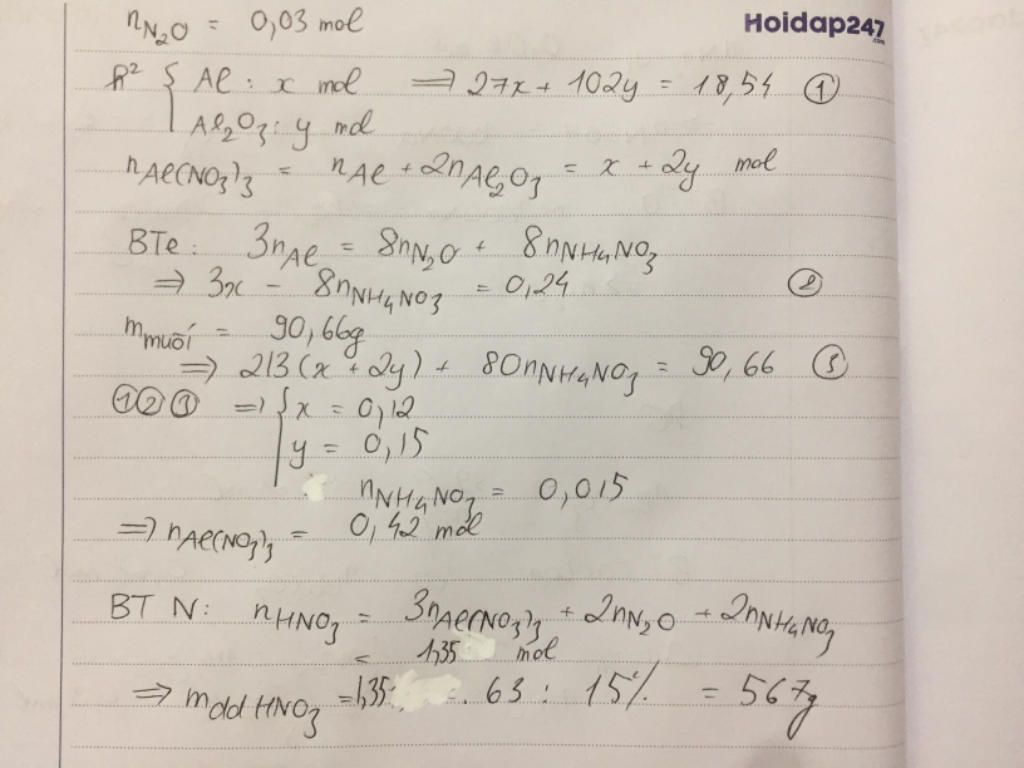 nN2O = 0,03 mol
Hoidap247
.com
h² { Al : x mol ⟹ 27x + 102y = 18,54 ①
Al2O3 : y mol
nAl(NO3)3 = nAl + 2nAl2O3 = x + 2y mol
BTe : 3nAl = 8nN2O + 8nNH4NO3
⟹ 3x - 8nNH4NO3 = 0,24 ②
mmuối = 90,66g
⟹ 213(x + 2y) + 80nNH4NO3 = 90,66 ③
①②③ ⟹ { x = 0,12
y = 0,15
nNH4NO3 = 0,015
⟹ nAl(NO3)3 = 0,42 mol
BT N : nHNO3 = 3nAl(NO3)3 + 2nN2O + 2nNH4NO3
= 1,35 mol
⟹ mdd HNO3 = 1,35 . 63 : 15% = 567g